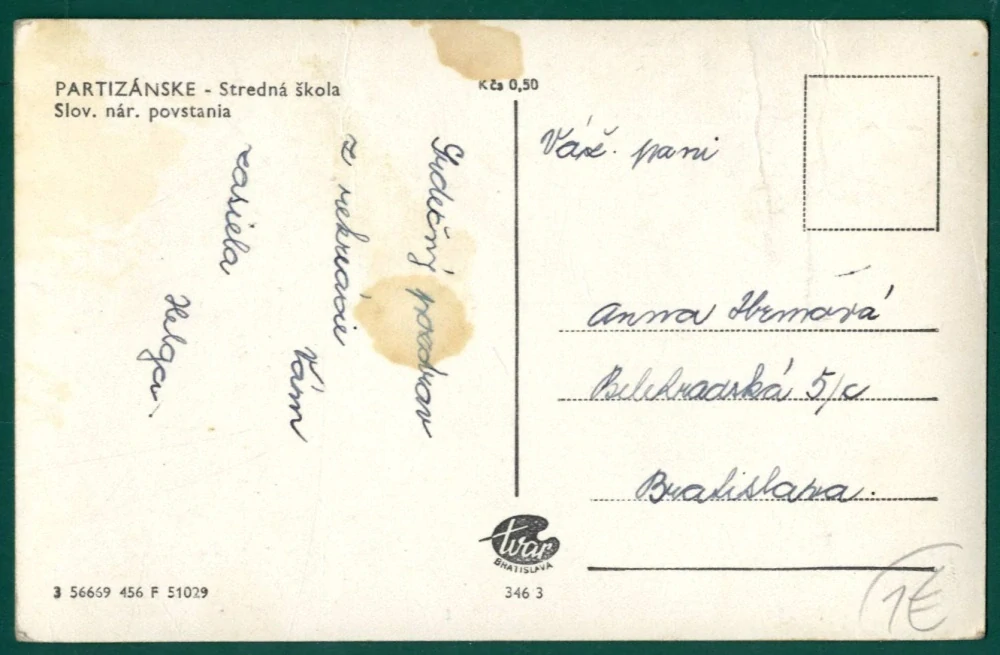 PARTIZÁNSKE - Stredná škola
Slov. nár. povstania
Kčs 0,50
Srdečný pozdrav
z rekreácie
Vám
zasiela
Helga.
Váž. pani
Anna
Belehradská 5/c
Bratislava.
tvar
BRATISLAVA
3 56669 456 F 51029
346 3
1€